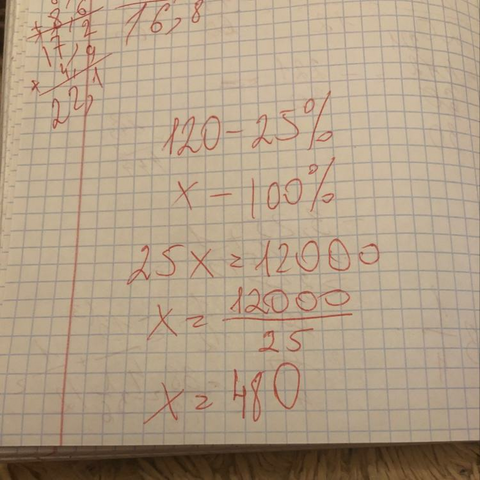 8,6
+ 8,2
16,8
17,9
× 4,
22,1
120 - 25%
x - 100%
25x = 12000
x = 12000
25
x = 480